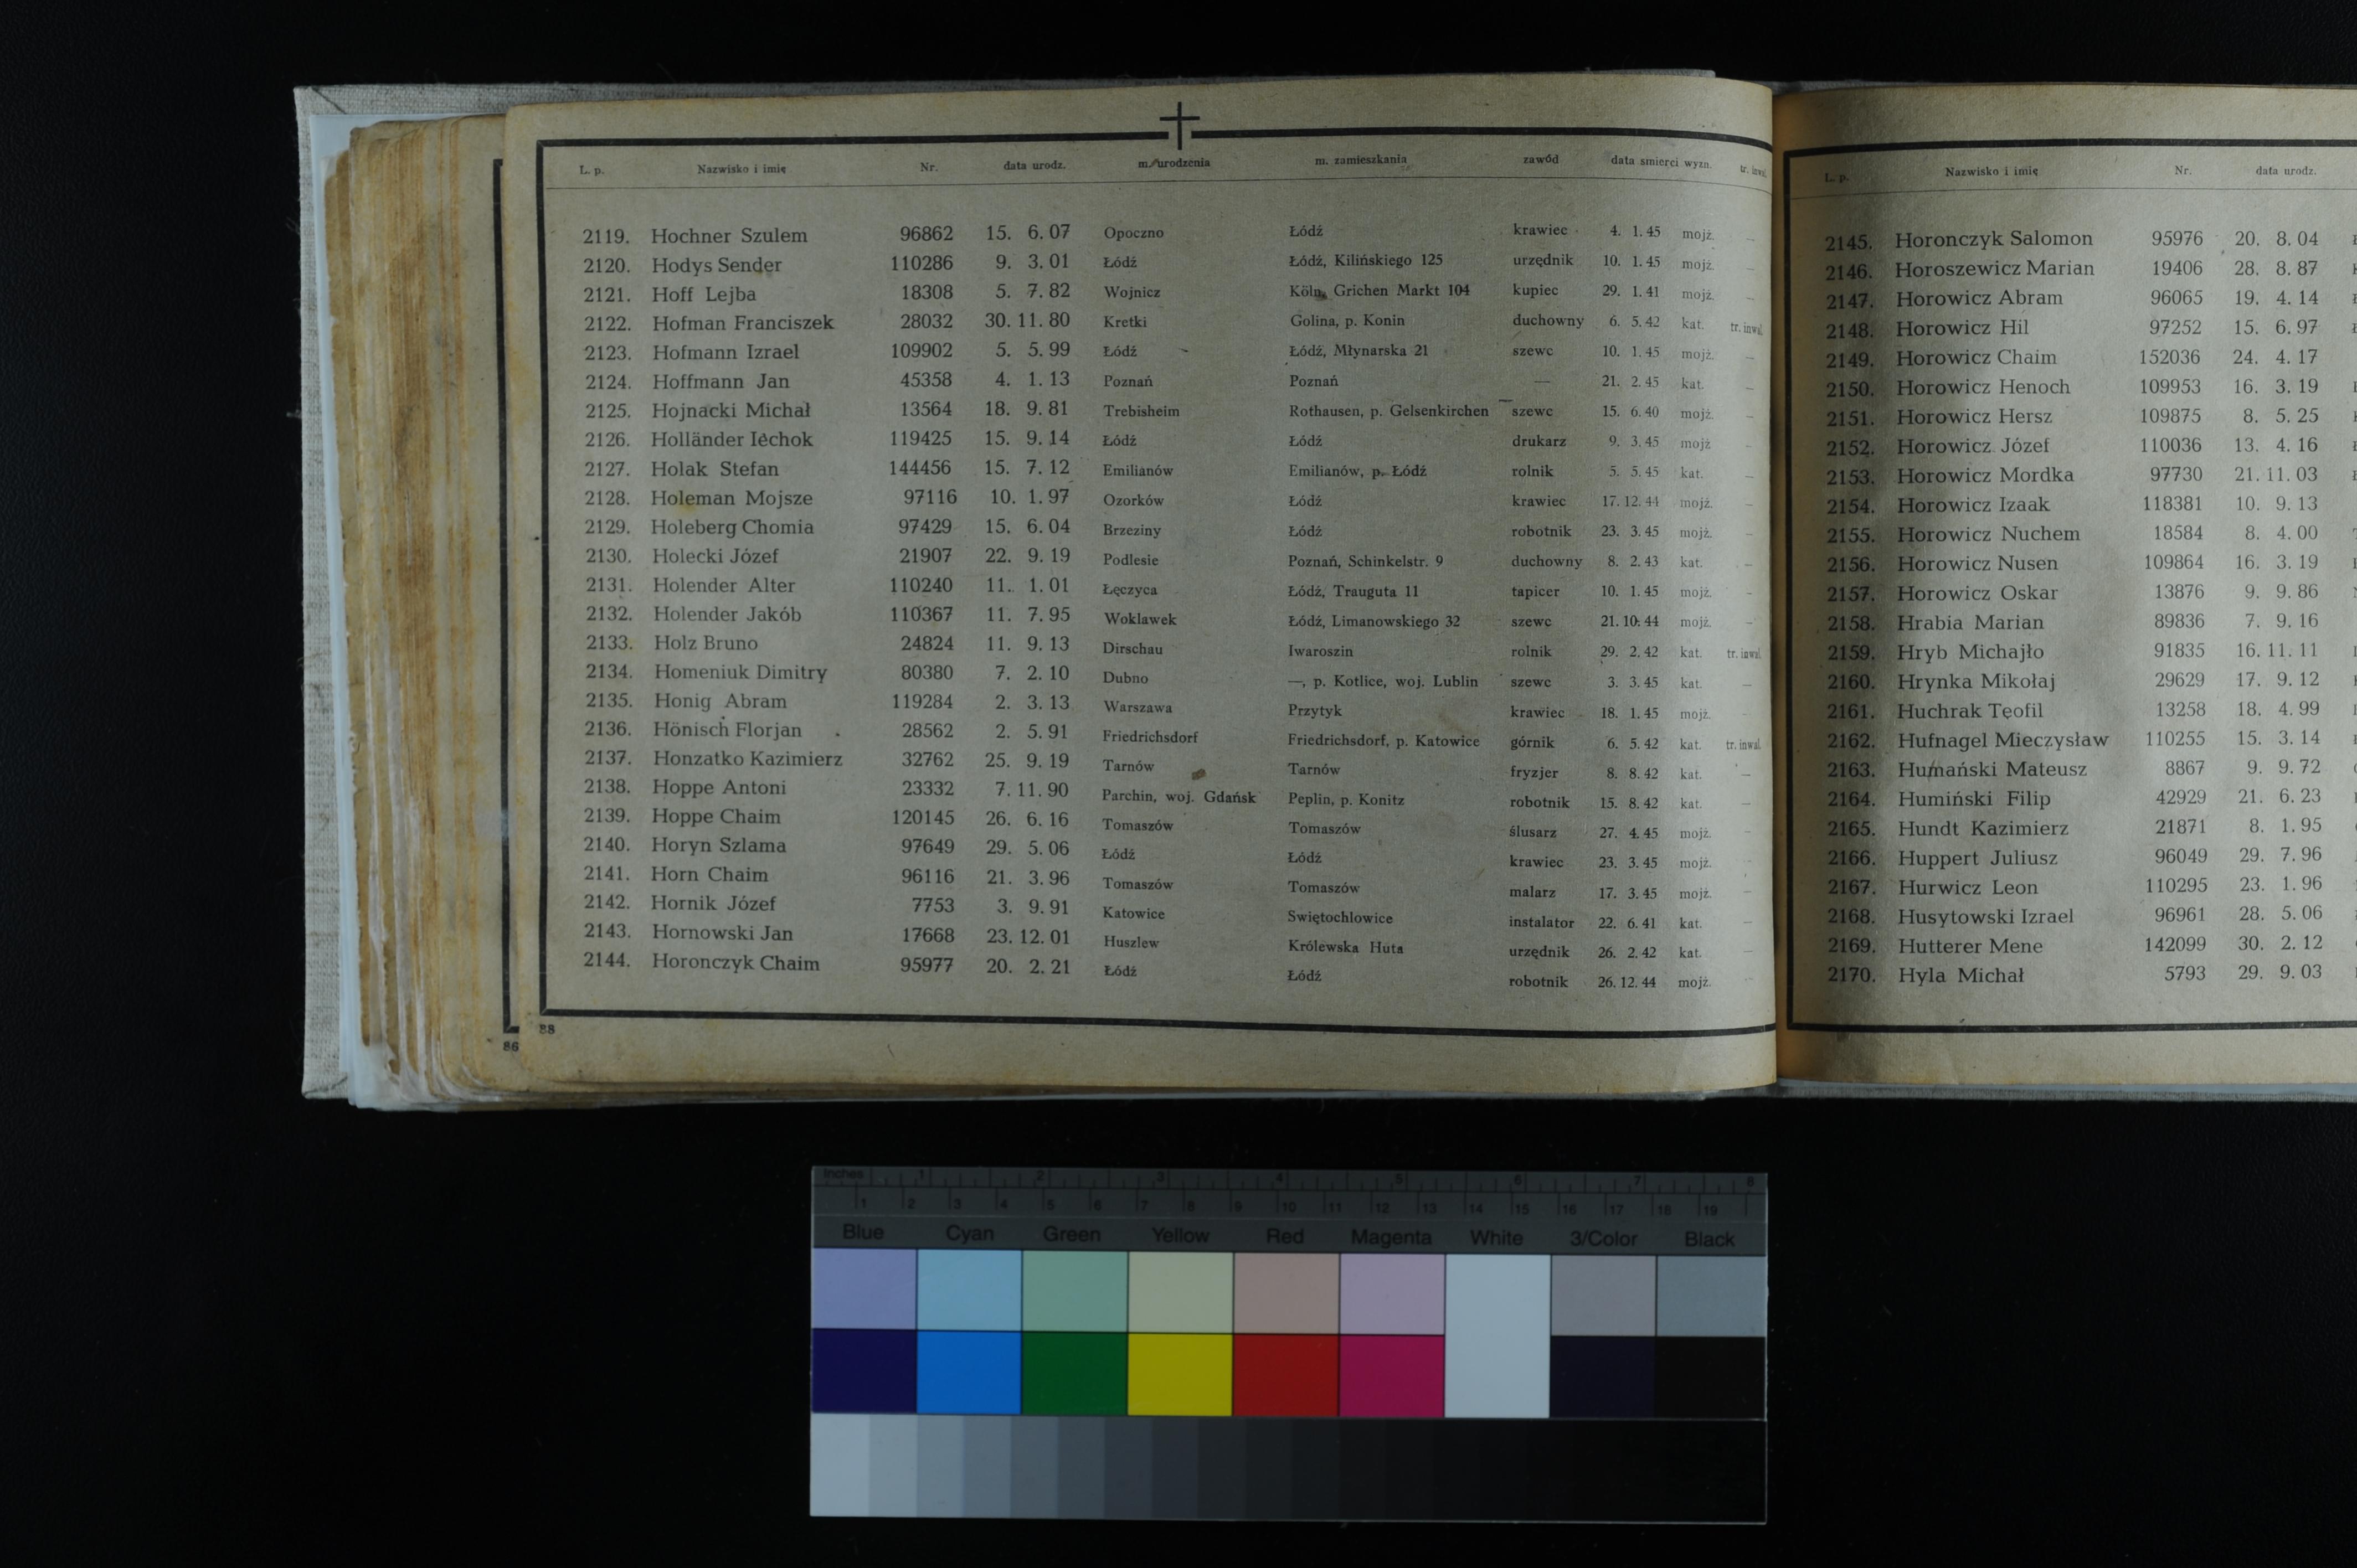 L. p. Nazwisko i imię Nr. data urodz. m. urodzenia m. zamieszkania zawód data smierci wyzn. tr. inwal.
2119. Hochner Szulem 96862 15. 6. 07 Opoczno Łódź krawiec 4. 1. 45 mojż. —
2120. Hodys Sender 110286 9. 3. 01 Łódź Łódź, Kilińskiego 125 urzędnik 10. 1. 45 mojż. —
2121. Hoff Lejba 18308 5. 7. 82 Wojnicz Köln, Grichen Markt 104 kupiec 29. 1. 41 mojż. —
2122. Hofman Franciszek 28032 30. 11. 80 Kretki Golina, p. Konin duchowny 6. 5. 42 kat. tr. inwal.
2123. Hofmann Izrael 109902 5. 5. 99 Łódź Łódź, Młynarska 21 szewc 10. 1. 45 mojż. —
2124. Hoffmann Jan 45358 4. 1. 13 Poznań Poznań — 21. 2. 45 kat. —
2125. Hojnacki Michał 13564 18. 9. 81 Trebisheim Rothausen, p. Gelsenkirchen szewc 15. 6. 40 mojż. —
2126. Holländer Iechok 119425 15. 9. 14 Łódź Łódź drukarz 9. 3. 45 mojż —
2127. Holak Stefan 144456 15. 7. 12 Emilianów Emilianów, p. Łódź rolnik 5. 5. 45 kat. —
2128. Holeman Mojsze 97116 10. 1. 97 Ozorków Łódź krawiec 17. 12. 44 mojż. —
2129. Holeberg Chomia 97429 15. 6. 04 Brzeziny Łódź robotnik 23. 3. 45 mojż. —
2130. Holecki Józef 21907 22. 9. 19 Podlesie Poznań, Schinkelstr. 9 duchowny 8. 2. 43 kat. —
2131. Holender Alter 110240 11. 1. 01 Łęczyca Łódź, Trauguta 11 tapicer 10. 1. 45 mojż. —
2132. Holender Jakób 110367 11. 7. 95 Woklawek Łódź, Limanowskiego 32 szewc 21. 10. 44 mojż. —
2133. Holz Bruno 24824 11. 9. 13 Dirschau Iwaroszin rolnik 29. 2. 42 kat. tr. inwal.
2134. Homeniuk Dimitry 80380 7. 2. 10 Dubno —, p. Kotlice, woj. Lublin szewc 3. 3. 45 kat. —
2135. Honig Abram 119284 2. 3. 13 Warszawa Przytyk krawiec 18. 1. 45 mojż. —
2136. Hönisch Florjan 28562 2. 5. 91 Friedrichsdorf Friedrichsdorf, p. Katowice górnik 6. 5. 42 kat. tr. inwal.
2137. Honzatko Kazimierz 32762 25. 9. 19 Tarnów Tarnów fryzjer 8. 8. 42 kat. —
2138. Hoppe Antoni 23332 7. 11. 90 Parchin, woj. Gdańsk Peplin, p. Konitz robotnik 15. 8. 42 kat. —
2139. Hoppe Chaim 120145 26. 6. 16 Tomaszów Tomaszów ślusarz 27. 4. 45 mojż. —
2140. Horyn Szlama 97649 29. 5. 06 Łódź Łódź krawiec 23. 3. 45 mojż. —
2141. Horn Chaim 96116 21. 3. 96 Tomaszów Tomaszów malarz 17. 3. 45 mojż. —
2142. Hornik Józef 7753 3. 9. 91 Katowice Swiętochlowice instalator 22. 6. 41 kat. —
2143. Hornowski Jan 17668 23. 12. 01 Huszlew Królewska Huta urzędnik 26. 2. 42 kat. —
2144. Horonczyk Chaim 95977 20. 2. 21 Łódź Łódź robotnik 26. 12. 44 mojż. —
88
86
L. p. Nazwisko i imię Nr. data urodz.
2145. Horonczyk Salomon 95976 20. 8. 04
2146. Horoszewicz Marian 19406 28. 8. 87
2147. Horowicz Abram 96065 19. 4. 14
2148. Horowicz Hil 97252 15. 6. 97
2149. Horowicz Chaim 152036 24. 4. 17
2150. Horowicz Henoch 109953 16. 3. 19
2151. Horowicz Hersz 109875 8. 5. 25
2152. Horowicz Józef 110036 13. 4. 16
2153. Horowicz Mordka 97730 21. 11. 03
2154. Horowicz Izaak 118381 10. 9. 13
2155. Horowicz Nuchem 18584 8. 4. 00
2156. Horowicz Nusen 109864 16. 3. 19
2157. Horowicz Oskar 13876 9. 9. 86
2158. Hrabia Marian 89836 7. 9. 16
2159. Hryb Michajło 91835 16. 11. 11
2160. Hrynka Mikołaj 29629 17. 9. 12
2161. Huchrak Teofil 13258 18. 4. 99
2162. Hufnagel Mieczysław 110255 15. 3. 14
2163. Humański Mateusz 8867 9. 9. 72
2164. Humiński Filip 42929 21. 6. 23
2165. Hundt Kazimierz 21871 8. 1. 95
2166. Huppert Juliusz 96049 29. 7. 96
2167. Hurwicz Leon 110295 23. 1. 96
2168. Husytowski Izrael 96961 28. 5. 06
2169. Hutterer Mene 142099 30. 2. 12
2170. Hyla Michał 5793 29. 9. 03
Inches 1 2 3 4 5 6 7 8
1 2 3 4 5 6 7 8 9 10 11 12 13 14 15 16 17 18 19
Blue Cyan Green Yellow Red Magenta White 3/Color Black